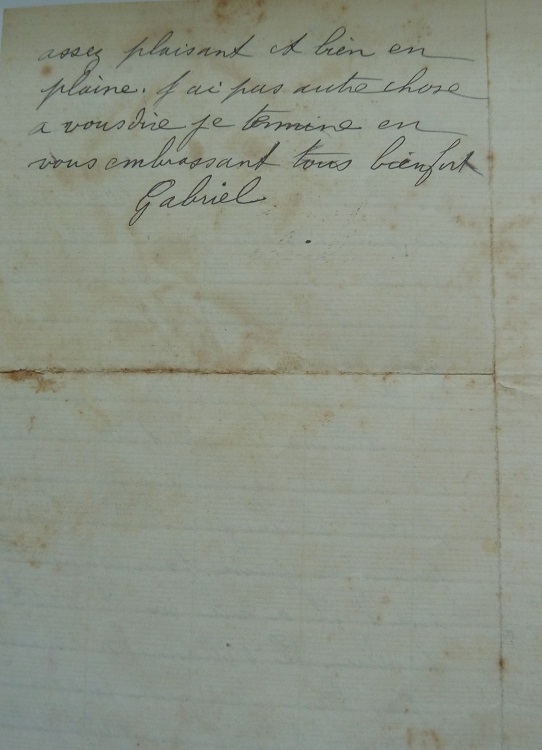 assez plaisant et bien en
plaine. J ai pas autre chose
a vous dire je termine en
vous embrassant tous bien fort
Gabriel